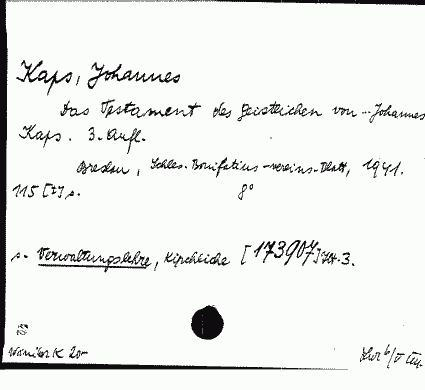 Kaps, Johannes
Das Testament des Geistlichen von ... Johannes
Kaps. 3. Aufl.
Breslau, Schles. Bonifatius-Vereins-Blatt, 1941.
115 [1] s. 8°
s. Verwaltungslehre, Kirchliche [173907] Ht. 3.
K 20-